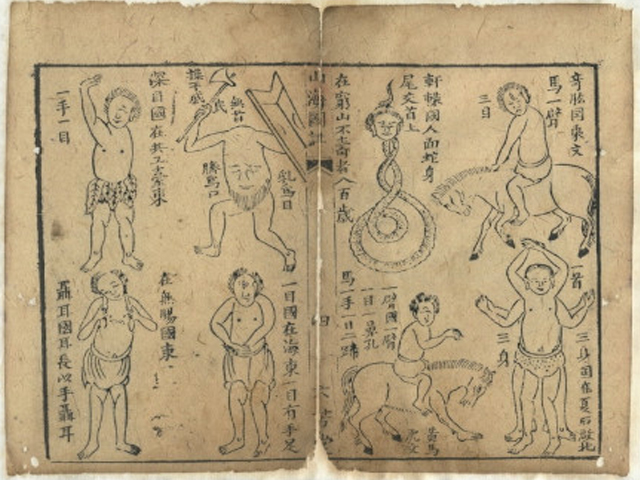 奇肱國乘文
馬一臂
三目
軒轅國人面蛇身
尾交首上
在窮山不壽者八百歲
一首
三身
三身國在夏后啟北
一臂國一臂
一目一鼻孔
馬一手一目二蹄
黃馬
虎文
山海圖
四
操干戚
無首
乳為目
臍為口
深目國在共工臺東
一手一目
一目國在海東一目有手足
在無腸國東
聶耳國耳長以手聶耳